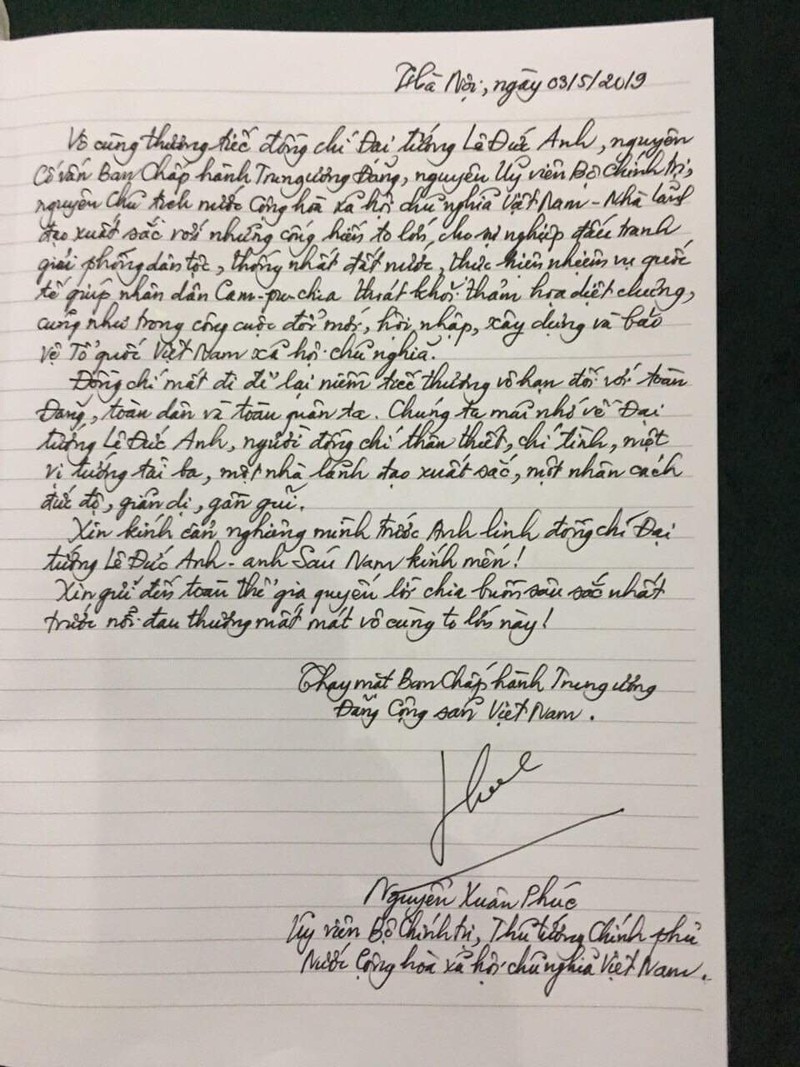 Hà Nội, ngày 03/5/2019
Vô cùng thương tiếc đồng chí Đại tướng Lê Đức Anh, nguyên
Cố vấn Ban Chấp hành Trung ương Đảng, nguyên Uỷ viên Bộ Chính trị,
nguyên Chủ tịch nước Cộng hoà xã hội chủ nghĩa Việt Nam - Nhà lãnh
đạo xuất sắc với những cống hiến to lớn, cho sự nghiệp đấu tranh
giải phóng dân tộc, thống nhất đất nước, thực hiện nhiệm vụ quốc
tế giúp nhân dân Cam-pu-chia thoát khỏi thảm họa diệt chủng,
cũng như trong công cuộc đổi mới, hội nhập, xây dựng và bảo
vệ Tổ quốc Việt Nam xã hội chủ nghĩa.
Đồng chí mất đi để lại niềm tiếc thương vô hạn đối với toàn
Đảng, toàn dân và toàn quân ta. Chúng ta mãi nhớ về Đại
tướng Lê Đức Anh, người đồng chí thân thiết, chí tình, một
vị tướng tài ba, một nhà lãnh đạo xuất sắc, một nhân cách
đức độ, giản dị, gần gũi.
Xin kính cẩn nghiêng mình trước Anh linh đồng chí Đại
tướng Lê Đức Anh - anh Sáu Nam kính mến!
Xin gửi đến toàn thể gia quyến lời chia buồn sâu sắc nhất
trước nỗi đau thương mất mát vô cùng to lớn này!
Thay mặt Ban Chấp hành Trung ương
Đảng Cộng sản Việt Nam.
Phuc
Nguyễn Xuân Phúc
Uỷ viên Bộ Chính trị, Thủ tướng Chính phủ
Nước Cộng hoà xã hội chủ nghĩa Việt Nam.